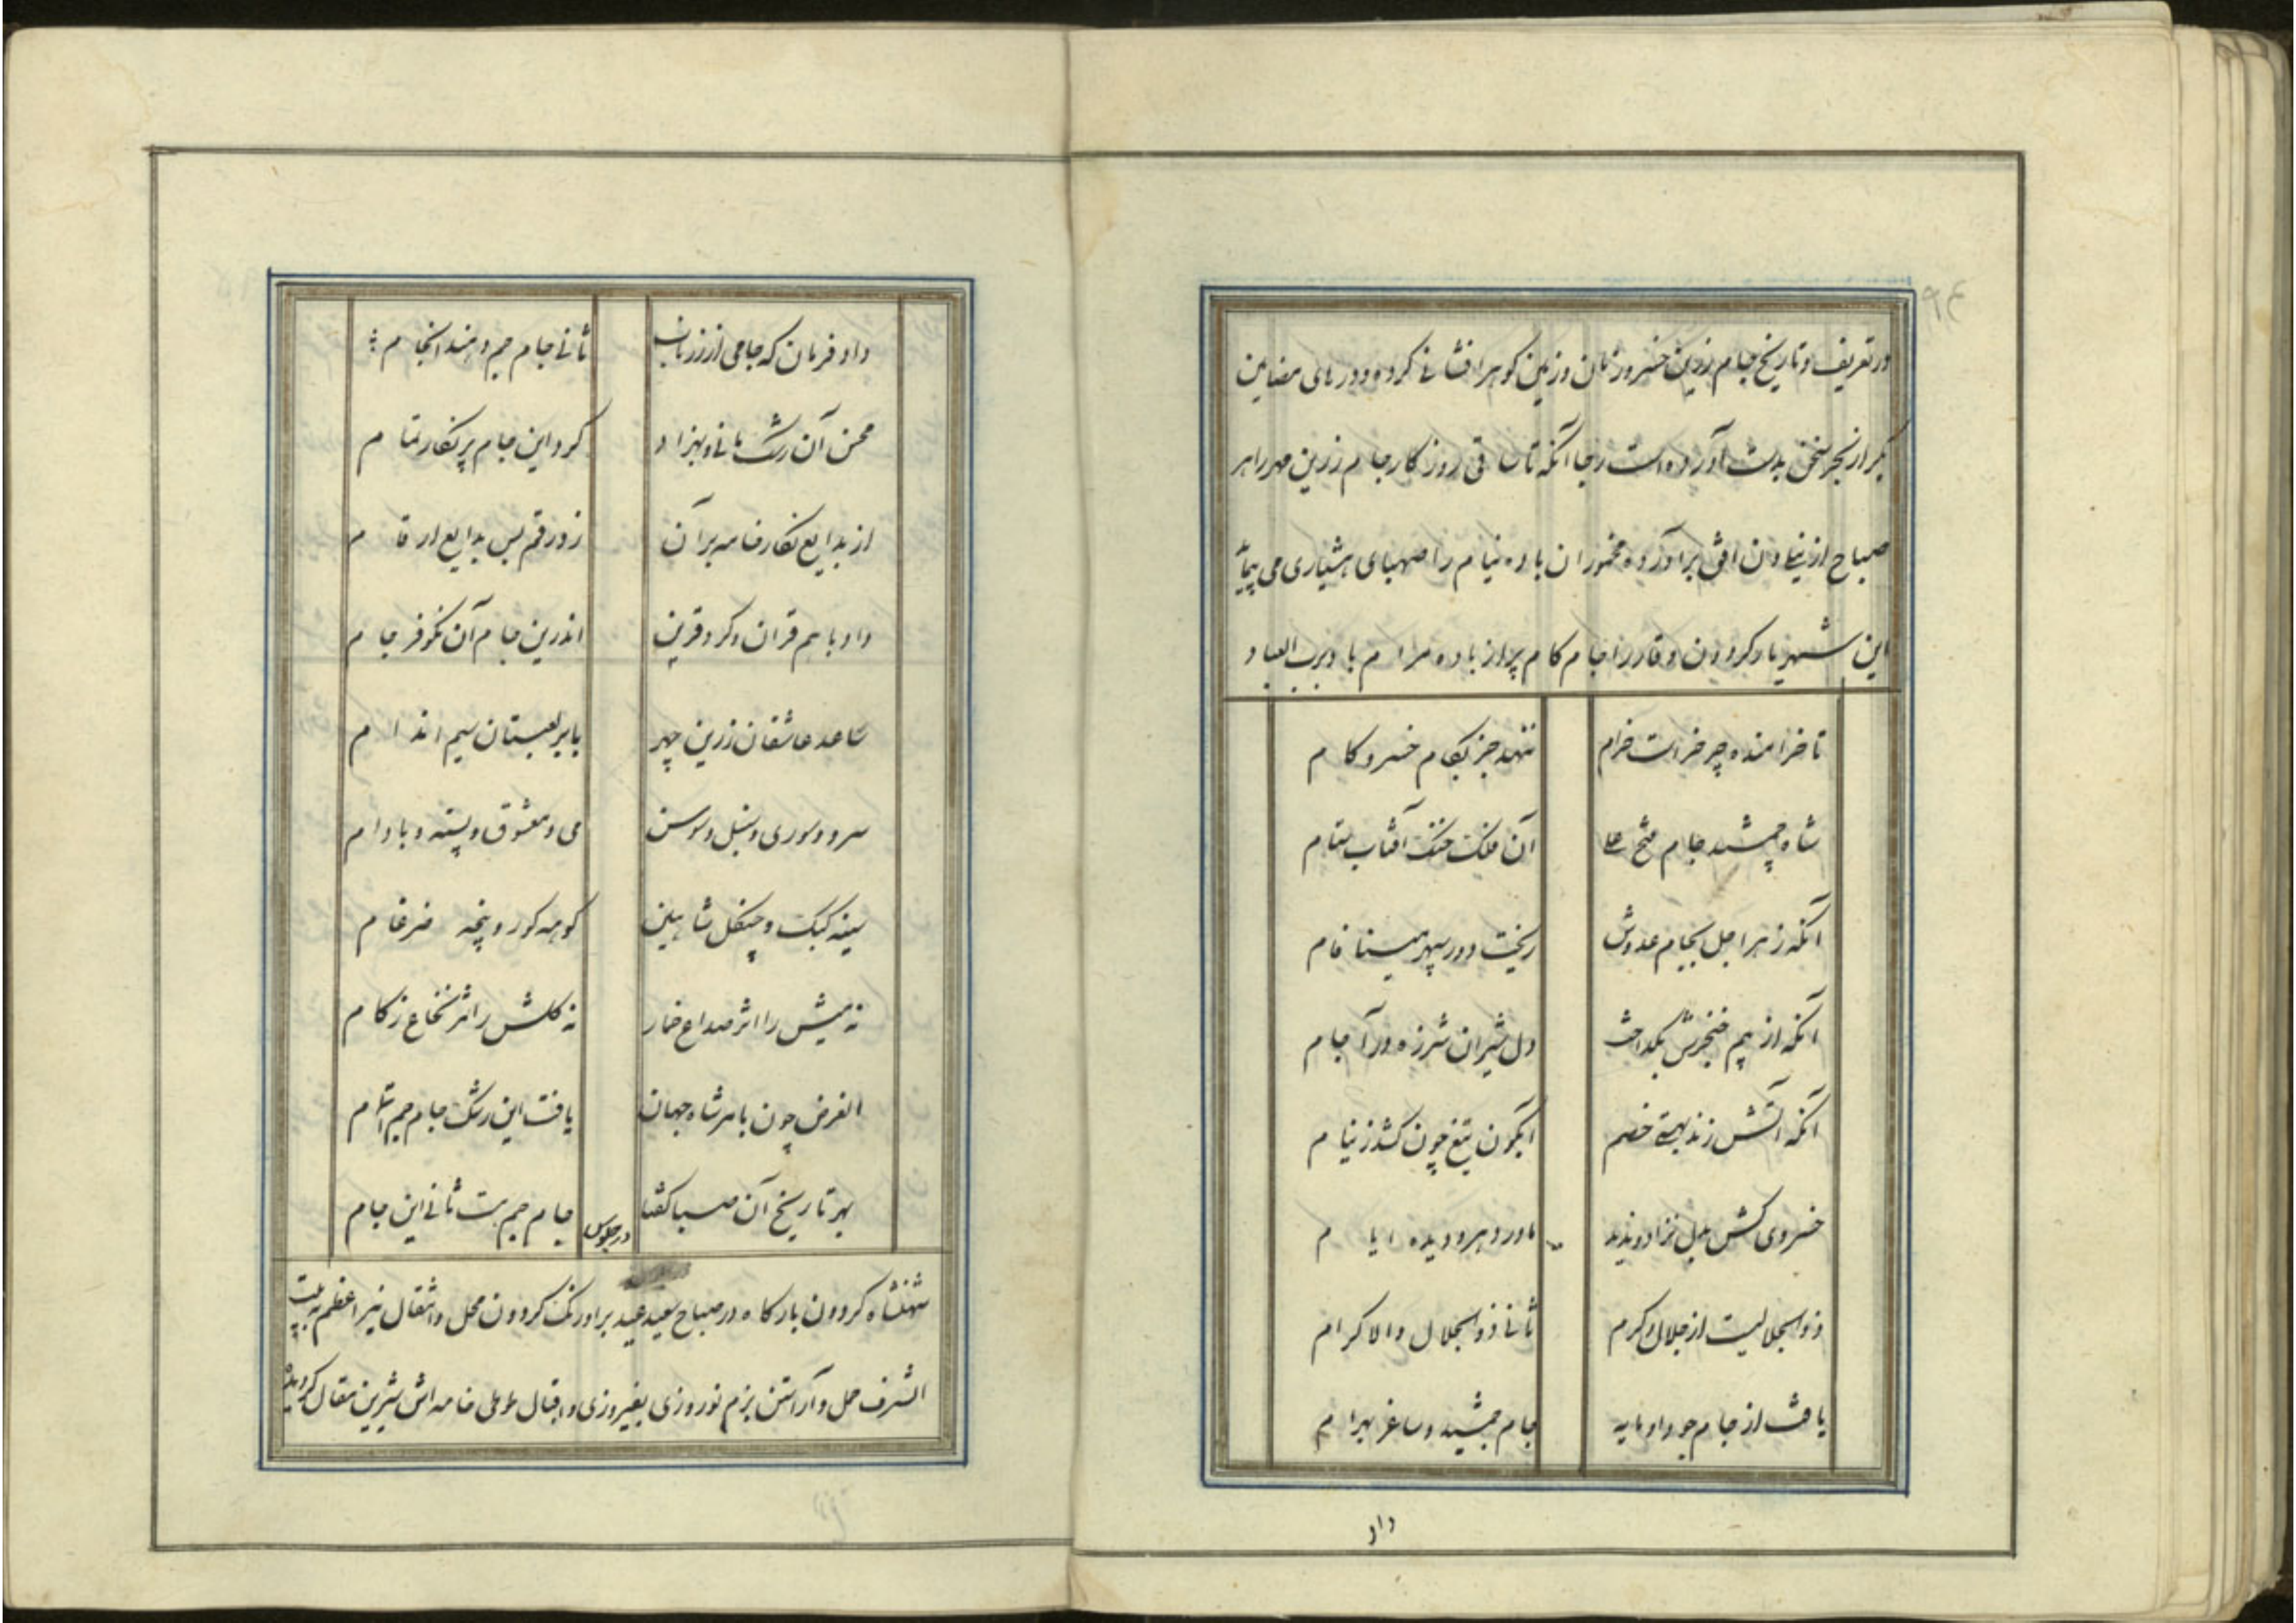 در تعریف و تاریخ جام زرین خسرو زمان و زمین گوهرافشانی کرده و درهای مضامین
بکر از بحر سخن بدست آورده است رجا آنکه تا ساقی روزکار جام زرین مهر را هر
صباح از نیلی دن افق برآورده مخموران باده نیام را صهبای هشیاری می پیماید
این شهریار کردون وقار را جام کام پر از باده مرام باد برب العباد
تا خرامنده چرخ راست خرام
ننهد جز بکام خسرو کام
شاه جمشید جام فتح علی
آن فلک خنک آفتاب ستام
آنکه زهر اجل بجام عدوش
ریخت دور سپهر مینا فام
آنکه از بیم خنجرش بگداخت
دل شیران شرزه در آجام
آنکه آتش زند بهستی خصم
آبگون تیغ چون کشد ز نیام
خسروی کش بدل نزاد و ندید
مادر دهر و دیده ایام
ذوالجلالیست از جلال و کرم
ثانی ذوالجلال والاکرام
یافت از جام جود او مایه
جام جمشید و ساغر بهرام
داد
داد فرمان که جامی از زر ناب
ثانی جام جم دهند انجام
محسن آن رشک مانی و بهزاد
کرد این جام پر نکار تمام
از بدایع نکار خامه بر آن
زد رقم بس بدایع ارقام
داد با هم قران و کرد قرین
اندرین جام آن نکو فرجام
ساعد عاشقان زرین چهر
با بر لعبتان سیم اندام
سرو و سوری و سنبل و سوسن
می و معشوق و پسته و بادام
سینه کبک و چنکل شاهین
کوهه کور و پنجه ضرغام
نه میش را اثر صداع خمار
نه کلش را اثر نخاع زکام
الغرض چون بامر شاه جهان
یافت این رشک جام جم اتمام
بهر تاریخ آن صبا کفتا
جام جم هست ثانی این جام
در جلوس
شهنشاه کردون بارکاه در صباح سعید عید بر اورنک کردون محل و انتقال نیر اعظم به بیت
الشرف حمل و آراستن بزم نوروزی بفیروزی و اقبال طوطی خامه اش شیرین مقال کردیده